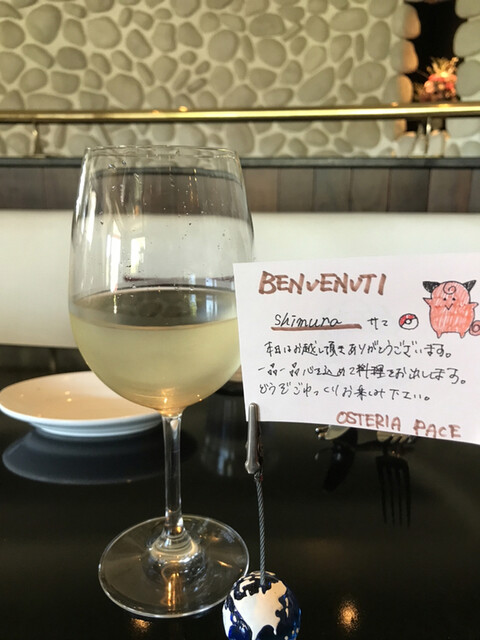 BENVENUTI
Shimura サマ
本日はお越し頂きありがとうございます。
一品一品心を込めて料理をお出しします。
どうぞごゆっくりお楽しみ下さい。
OSTERIA PACE